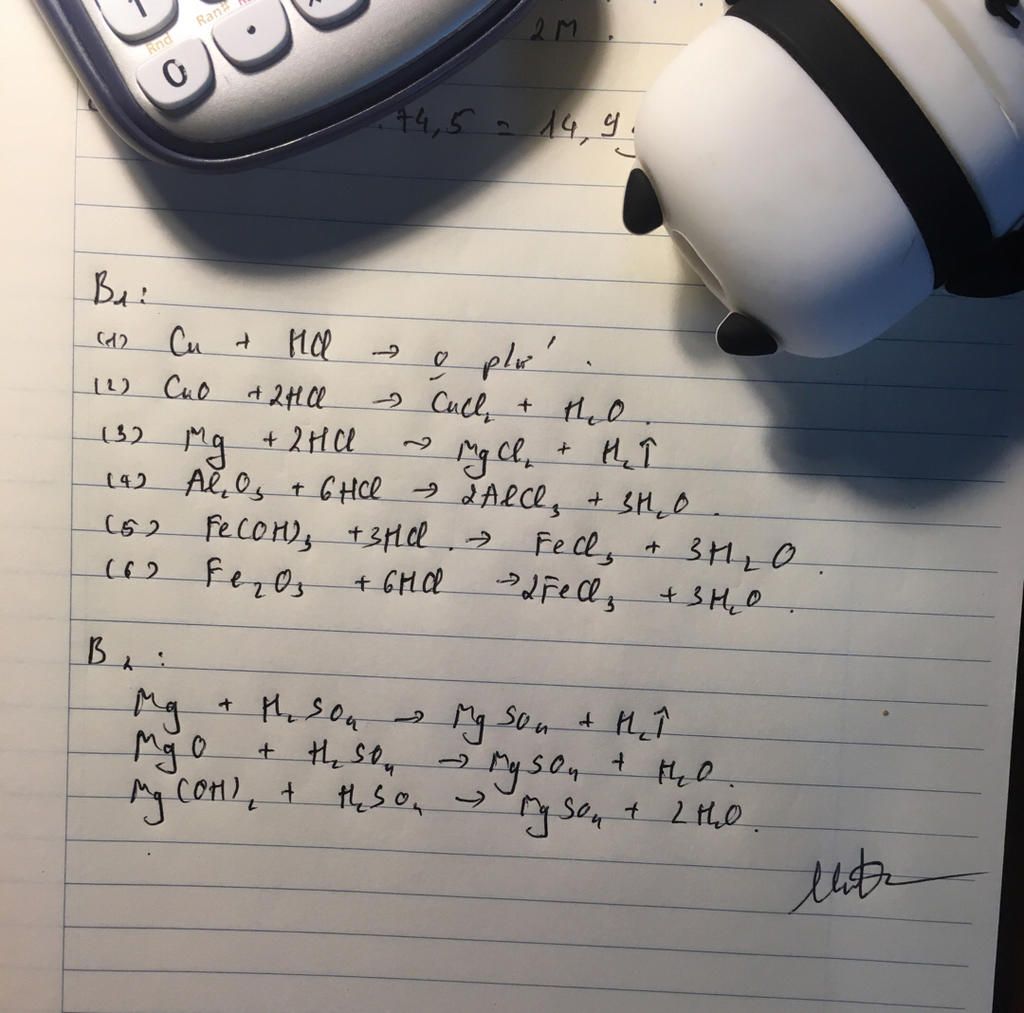 1
Rnd
Ran#
0
.
2M.
.74,5 = 14,9
B₁:
(1) Cu + HCl → o pứ.
(2) CuO + 2HCl → CuCl₂ + H₂O.
(3) Mg + 2HCl → MgCl₂ + H₂↑
(4) Al₂O₃ + 6HCl → 2AlCl₃ + 3H₂O.
(5) Fe(OH)₃ + 3HCl → FeCl₃ + 3H₂O.
(6) Fe₂O₃ + 6HCl → 2FeCl₃ + 3H₂O.
B₂:
Mg + H₂SO₄ → MgSO₄ + H₂↑
MgO + H₂SO₄ → MgSO₄ + H₂O.
Mg(OH)₂ + H₂SO₄ → MgSO₄ + 2H₂O.